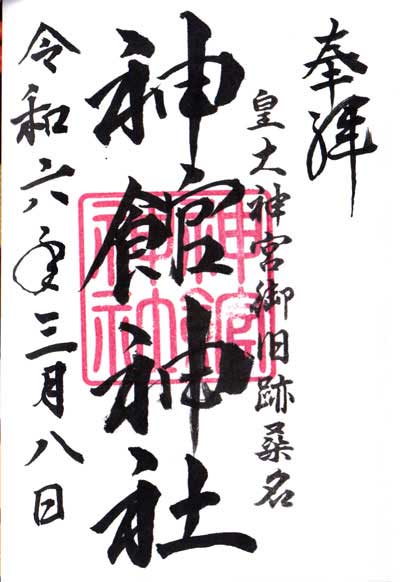 奉拝
皇大神宮御旧跡桑名
神館神社
神館神社
令和六年三月八日